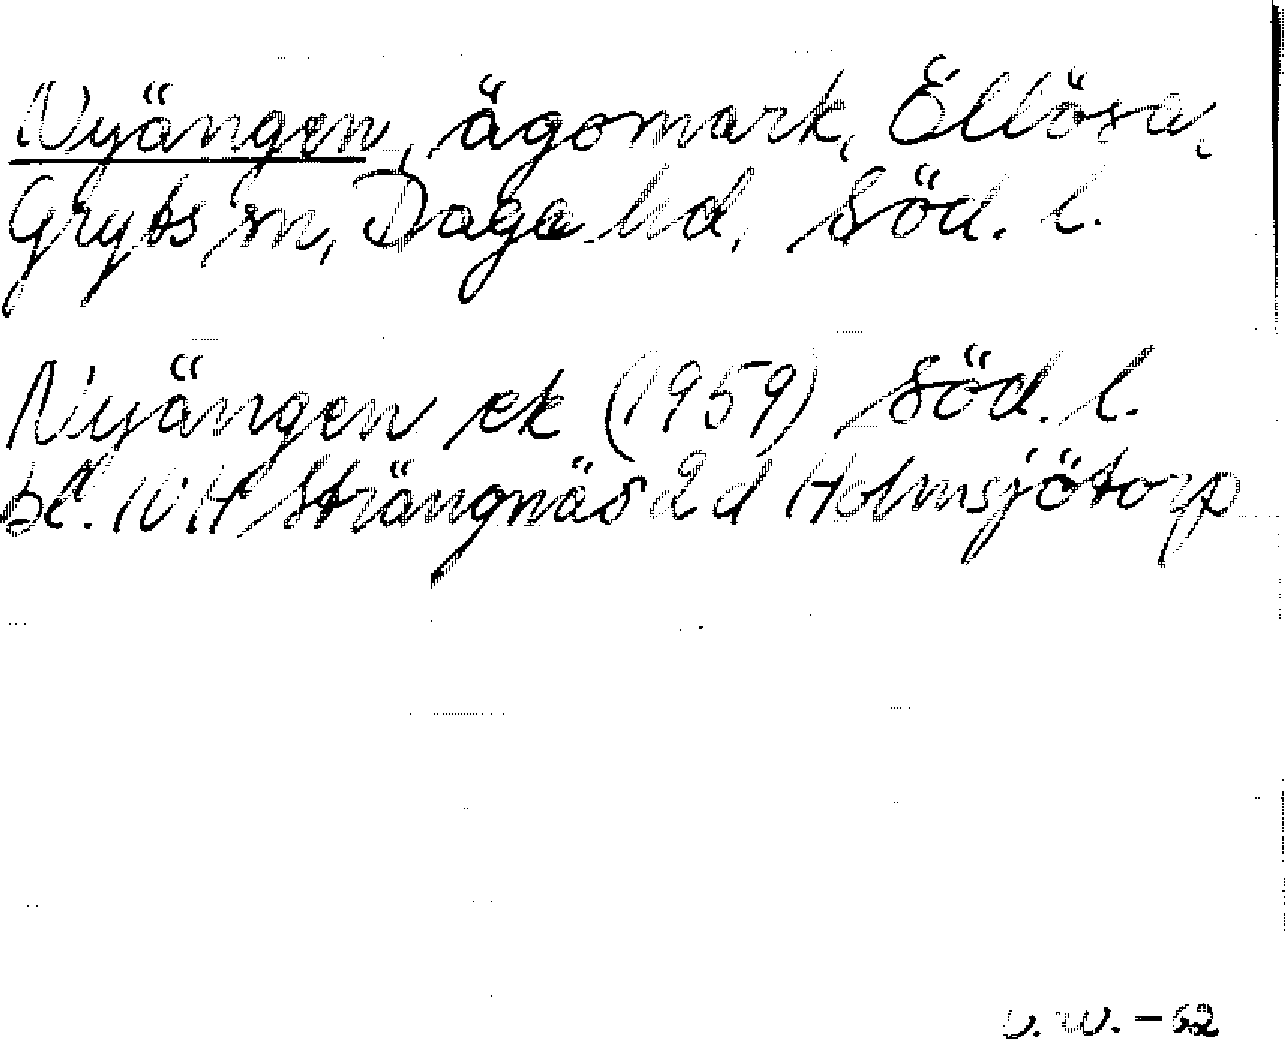 Nyängen, ägomark, Ëllösa,
Gryts sn, Daga hd, Söd. l.
Nyängen ek (1959) Söd. l.
bl. 10 H Strängnäs 2 d Holmsjötorp
V. W. - 62